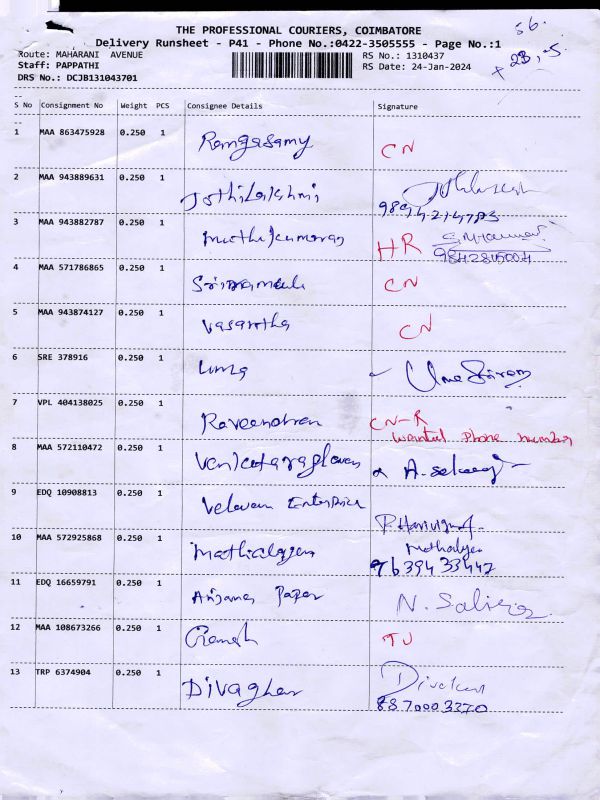 THE PROFESSIONAL COURIERS, COIMBATORE
56.
Delivery Runsheet - P41 - Phone No.:0422-3505555 - Page No.:1
Route: MAHARANI AVENUE RS No.: 1310437
Staff: PAPPATHI RS Date: 24-Jan-2024
DRS No.: DCJB131043701
S No Consignment No Weight PCS Consignee Details Signature
1 MAA 863475928 0.250 1 Rangasamy CN
2 MAA 943889631 0.250 1 Jothilakshmi
3 MAA 943882787 0.250 1 Muthukumaran HR
9842815004
4 MAA 571786865 0.250 1 CN
5 MAA 943874127 0.250 1 Vasantha CN
6 SRE 378916 0.250 1 Uma Uma Sriram
7 VPL 404138025 0.250 1 Raveendran CN-R
wanted phone number
8 MAA 572110472 0.250 1 Venkataraghavan
9 EDQ 10908813 0.250 1 Velavan Enterprice
10 MAA 572925868 0.250 1 Mathialagan
9639433447
11 EDQ 16659791 0.250 1 Anjana Paper N.
12 MAA 108673266 0.250 1 Ramesh TJ
13 TRP 6374904 0.250 1 Divaghar
8870003220